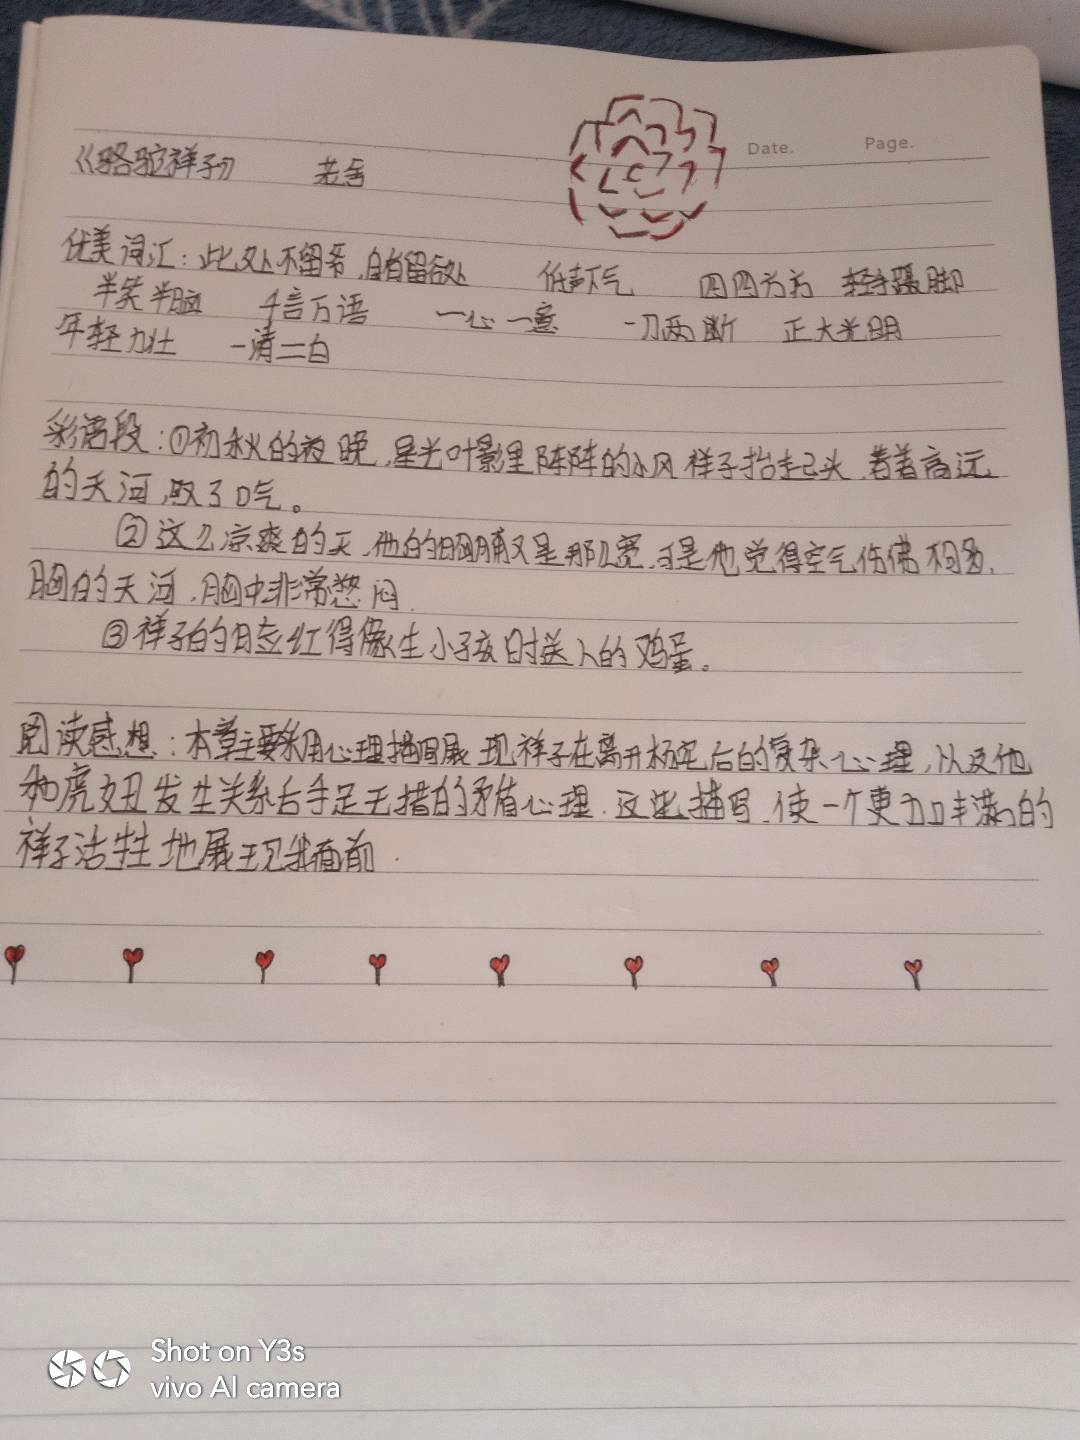 Date. Page.
《骆驼祥子》 老舍
优美词汇：此处不留爷，自有留爷处 低声下气 四四方方 轻手蹑脚
半笑半恼 千言万语 一心一意 一刀两断 正大光明
年轻力壮 一清二白
彩语段：①初秋的夜晚，星光叶影里阵阵的小风祥子抬起头，看着高远
的天河，叹了口气。
②这么凉爽的天，他的胸脯又是那么宽，可是他觉得空气仿佛不够，
胸的天河，胸中非常憋闷.
③祥子的脸红得像生小孩时送人的鸡蛋。
阅读感想：本章主要采用心理描写展现祥子在离开杨宅后的复杂心理，以及他
和虎妞发生关系后手足无措的矛盾心理.这些描写，使一个更加丰满的
祥子活生地展现我面前.
Shot on Y3s
vivo AI camera